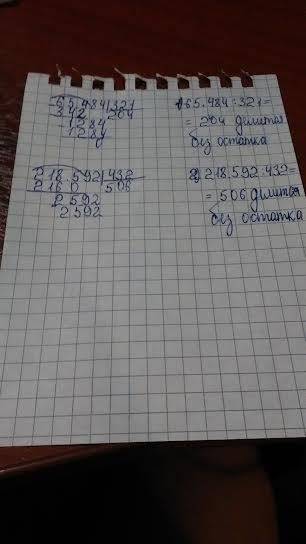 65.484 321
642 204
1284
1284
0
1) 65.484:321=
= 204 делится
без остатка
218.592 432
2160 506
2592
2592
2) 218.592:432=
= 506 делится
без остатка